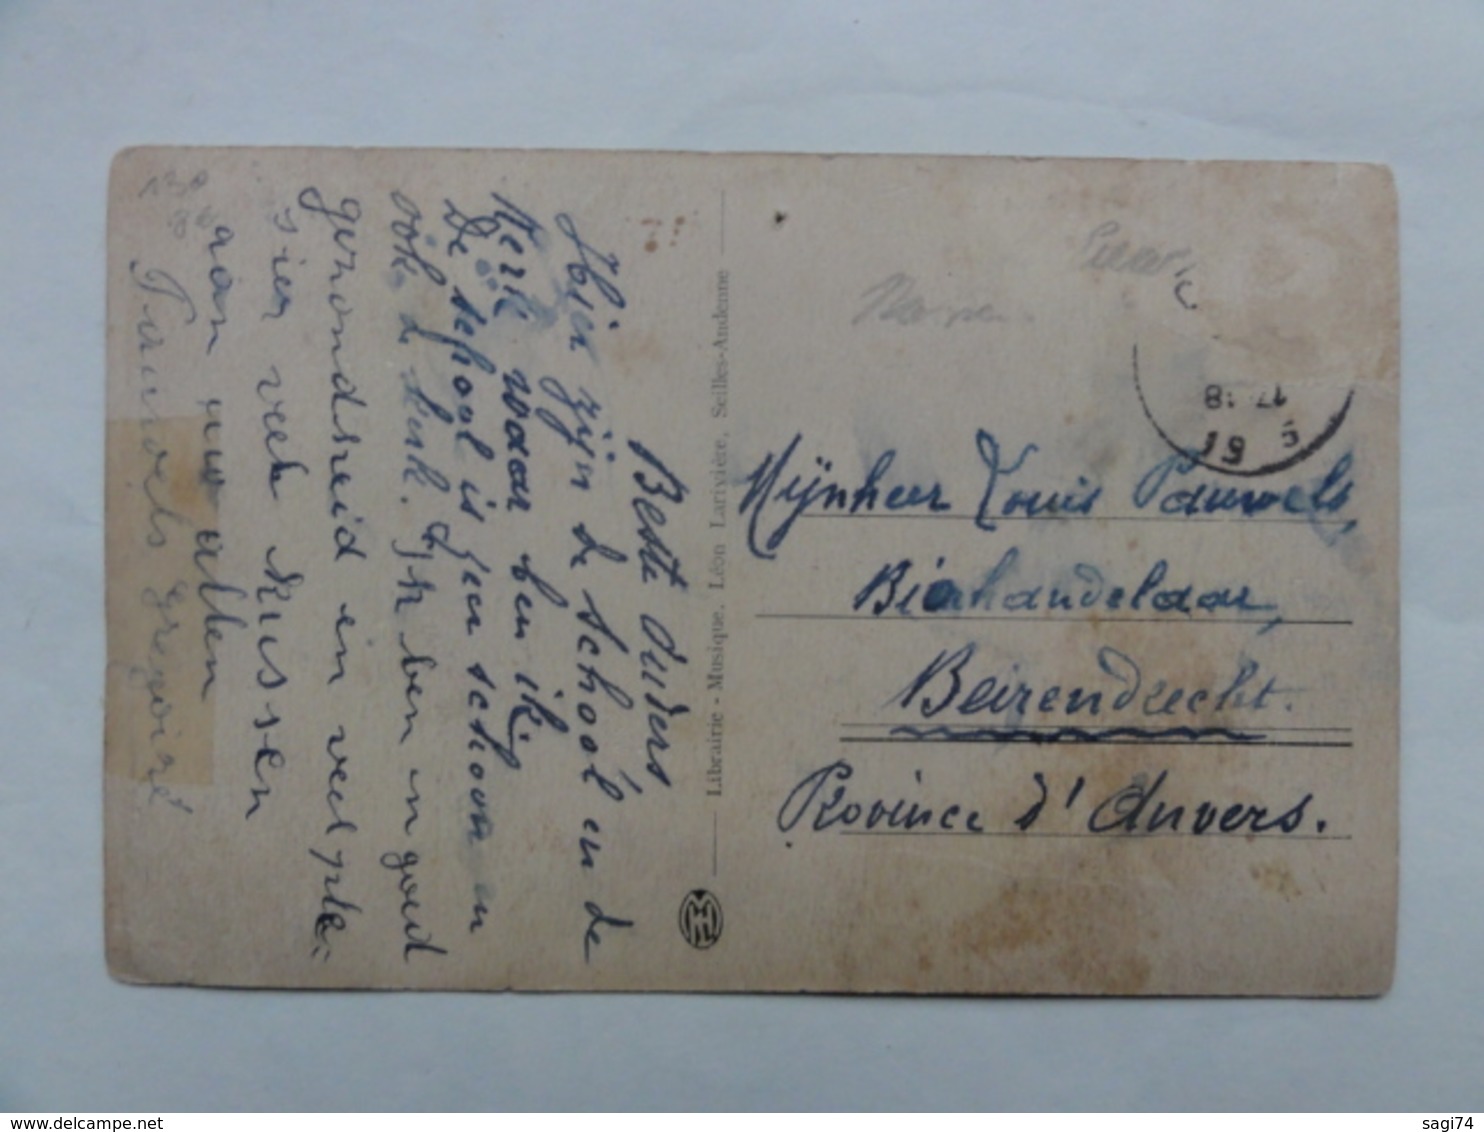 Beste Ouders
Hier zijn de school en de
Kerk waar ben ik,
De school is zeer schoon en
ook de kerk. Ik ben in goed
gezondheid en veel ple-
sier veel kussen
aan uw allen
Pauwels Gregoire
Librairie - Musique. Léon Larivière, Seilles-Andenne
Mijnheer Louis Pauwels,
Bierhandelaar,
Beirendrecht.
Province d'Anvers.
17-18
5
19
delcampe.net
sagi74